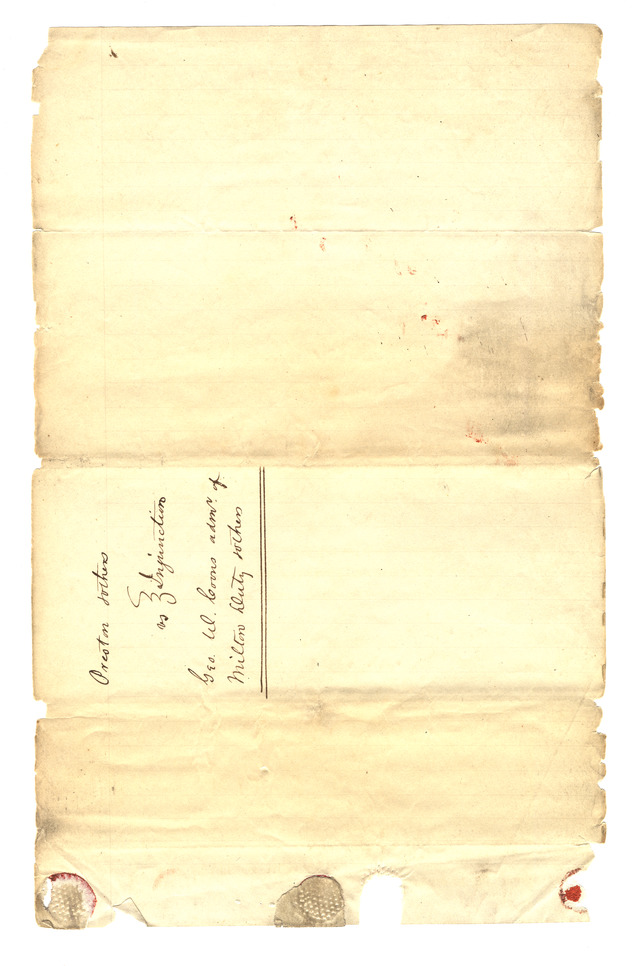 Preston & others
vs } Injunction
Geo. W. Coons admr. of
Milton Duty & others